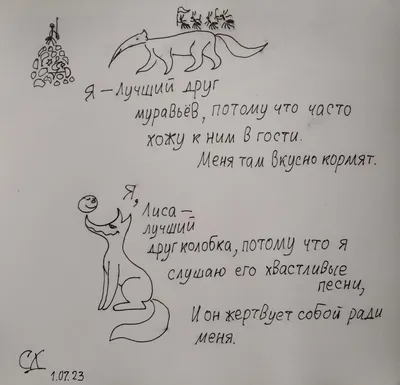 Я – лучший друг
муравьёв, потому что часто
хожу к ним в гости.
Меня там вкусно кормят.
Я,
Лиса –
лучший
друг колобка, потому что я
слушаю его хвастливые
песни,
И он жертвует собой ради
меня.
1.07.23